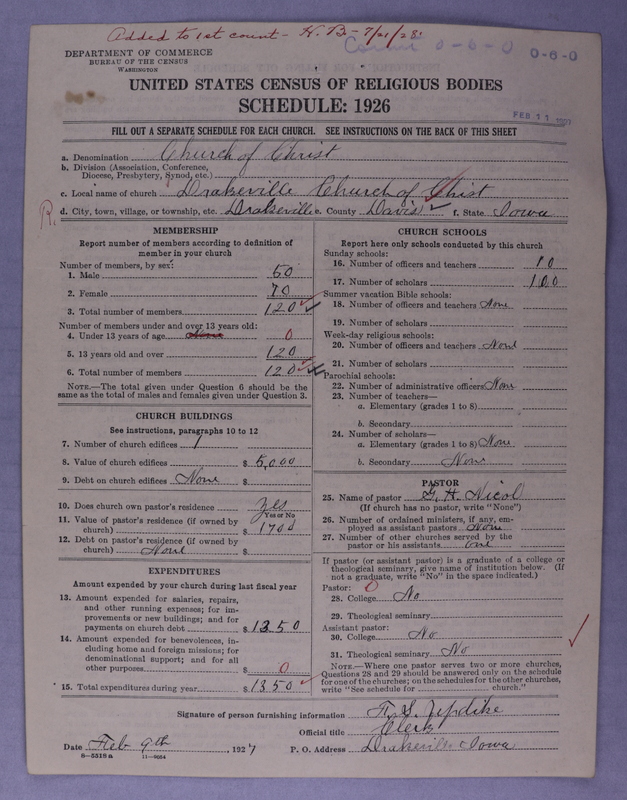 Added to 1st count - H.B - 7/21/28
Count 0-6-0 0-6-0
DEPARTMENT OF COMMERCE
BUREAU OF THE CENSUS
WASHINGTON
UNITED STATES CENSUS OF RELIGIOUS BODIES
SCHEDULE: 1926
FEB 11
FILL OUT A SEPARATE SCHEDULE FOR EACH CHURCH. SEE INSTRUCTIONS ON THE BACK OF THIS SHEET
a. Denomination Church of Christ
b. Division (Association, Conference,
Diocese, Presbytery, Synod, etc.)
c. Local name of church Drakeville Church of Christ
R. d. City, town, village, or township, etc. Drakeville e. County Davis f. State Iowa
MEMBERSHIP
Report number of members according to definition of
member in your church
Number of members, by sex:
1. Male 50
2. Female 70
3. Total number of members 120
Number of members under and over 13 years old:
4. Under 13 years of age None 0
5. 13 years old and over 120
6. Total number of members 120
NOTE.—The total given under Question 6 should be the
same as the total of males and females given under Question 3.
CHURCH BUILDINGS
See instructions, paragraphs 10 to 12
7. Number of church edifices 1
8. Value of church edifices $ 5,000
9. Debt on church edifices None $
10. Does church own pastor's residence Yes
Yes or No
11. Value of pastor's residence (if owned by
church) $ 1700
12. Debt on pastor's residence (if owned by
church) None $
EXPENDITURES
Amount expended by your church during last fiscal year
13. Amount expended for salaries, repairs,
and other running expenses; for im-
provements or new buildings; and for
payments on church debt $ 1350
14. Amount expended for benevolences, in-
cluding home and foreign missions; for
denominational support; and for all
other purposes $ 0
15. Total expenditures during year $ 1350
CHURCH SCHOOLS
Report here only schools conducted by this church
Sunday schools:
16. Number of officers and teachers 10
17. Number of scholars 100
Summer vacation Bible schools:
18. Number of officers and teachers None
19. Number of scholars
Week-day religious schools:
20. Number of officers and teachers None
21. Number of scholars
Parochial schools:
22. Number of administrative officers None
23. Number of teachers—
a. Elementary (grades 1 to 8)
b. Secondary
24. Number of scholars—
a. Elementary (grades 1 to 8) None
b. Secondary None
PASTOR
25. Name of pastor G. H. Nicol
(If church has no pastor, write "None")
26. Number of ordained ministers, if any, em-
ployed as assistant pastors None
27. Number of other churches served by the
pastor or his assistants one
If pastor (or assistant pastor) is a graduate of a college or
theological seminary, give name of institution below. (If
not a graduate, write "No" in the space indicated.)
Pastor: 0
28. College No
29. Theological seminary
Assistant pastor:
30. College No
31. Theological seminary No
NOTE.—Where one pastor serves two or more churches,
Questions 28 and 29 should be answered only on the schedule
for one of the churches; on the schedules for the other churches,
write "See schedule for church."
Signature of person furnishing information H. S. Updike
Official title Clerk
Date Feb 9th, 1927 P. O. Address Drakeville Iowa
8—5518a 11—9054